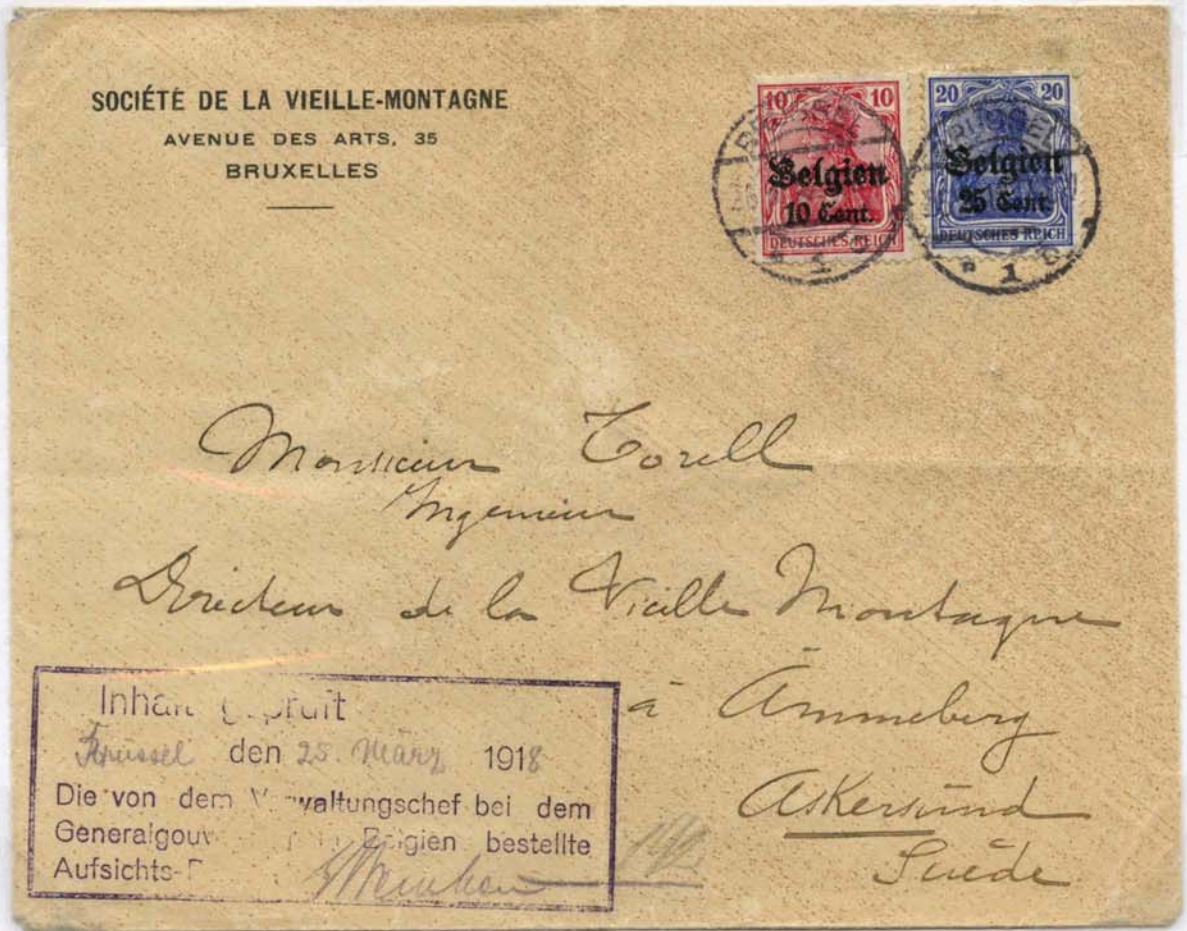 SOCIÉTÉ DE LA VIEILLE-MONTAGNE
AVENUE DES ARTS, 35
BRUXELLES
10 10
Belgien
10 Cent.
DEUTSCHES REICH
20 20
Belgien
25 Cent.
DEUTSCHES REICH
1
1
Monsieur Torell
Ingenieur
Directeur de la Vieille Montagne
à Ämmeberg
Askersund
Suède
Brüssel den 25. März 1918
Die von dem waltungschef bei dem
Belgien bestellte
Aufsichts-